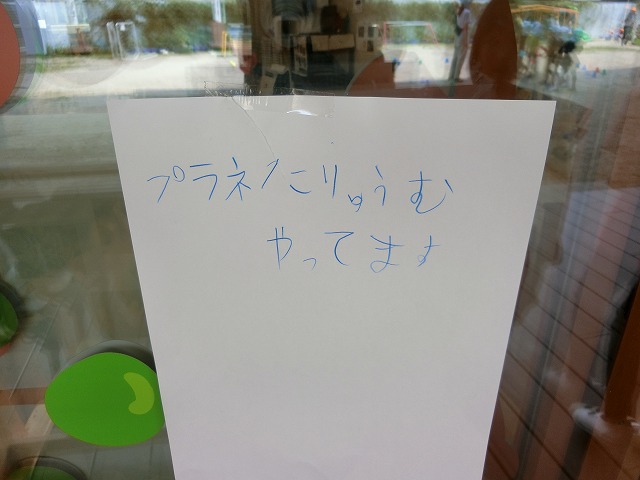 プラネたりゅうむ
やってます